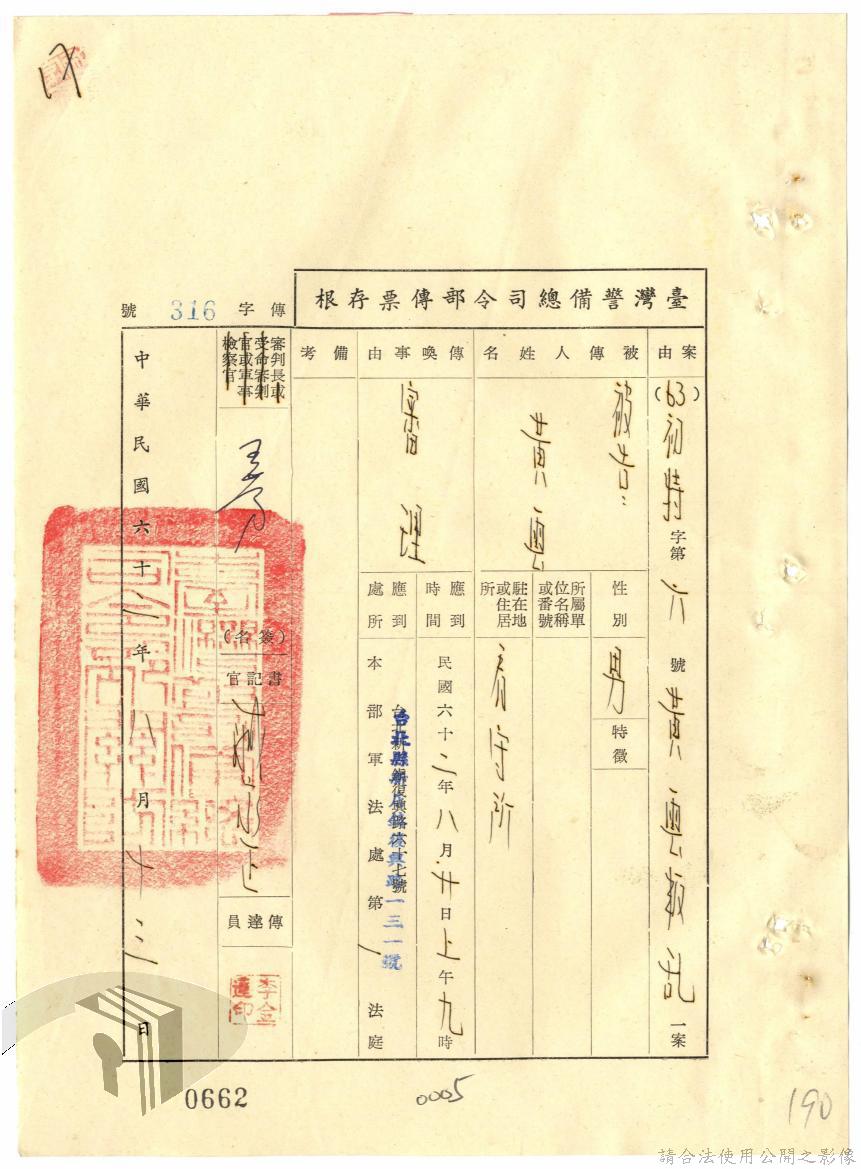 臺灣警備總司令部傳票存根
傳字 316 號
案由
(63)初特字第六號黃
叛乱一案
被傳人姓名
被告：
黃
性別
男
特徵
所屬單位名稱或番號
駐在地或住居所
看守所
傳喚事由
審理
應到時間
民國六十二年八月廿日上午九時
應到處所
本部軍法處第一法庭
台北縣新店鎮復興路一三一號
備考
審判長或受命審判官或軍事檢察官
(簽名)
書記官
傳達員
李金
印
中華民國六十二年八月十三日
0662
0005
190
請合法使用公開之影像